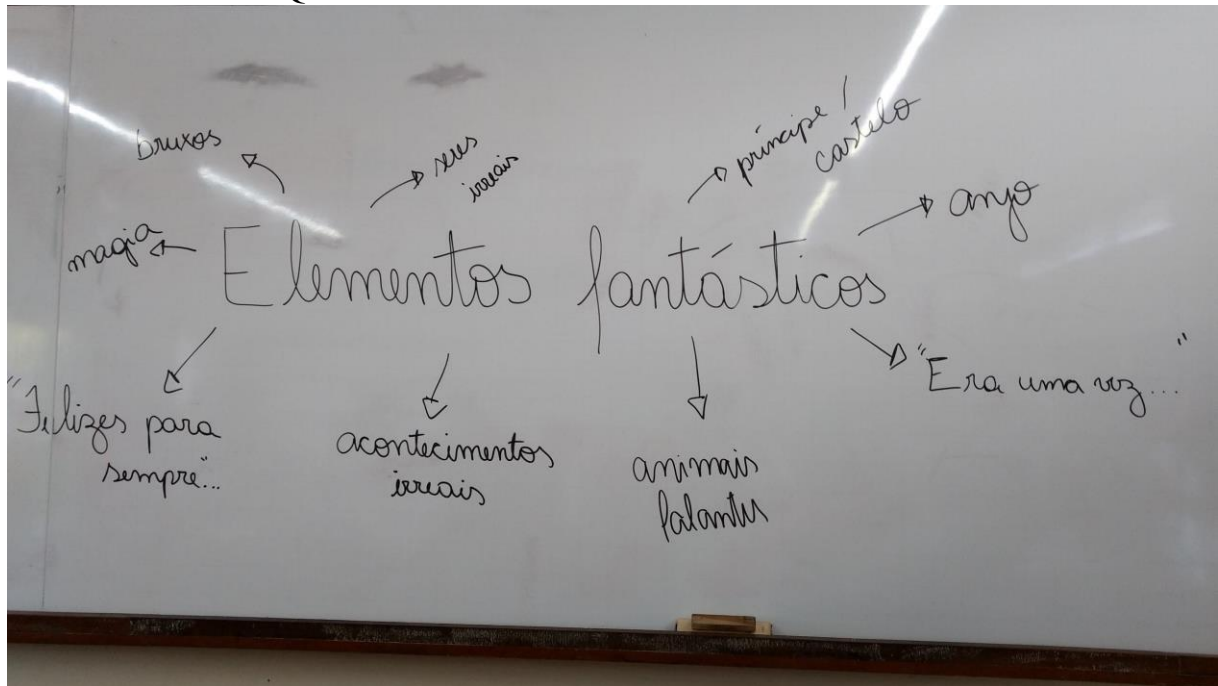 bruxos
seres
irreais
príncipe /
castelo
magia
anjo
Elementos fantásticos
"Felizes para
sempre"...
acontecimentos
irreais
animais
falantes
"Era uma vez... "